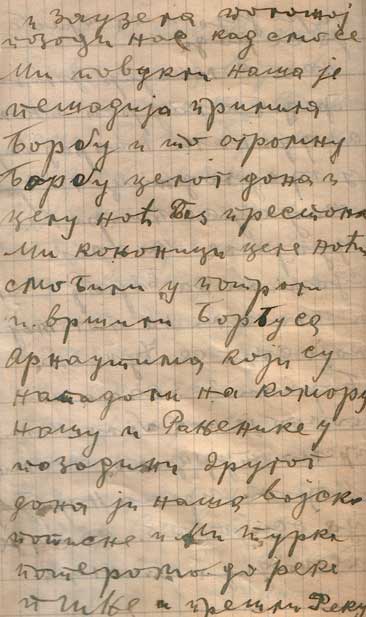 и заузела положој
позоди нас кад смо се
Ми повукли наша је
пешадија примила
Борбу и то огромну
Борбу целог дона и
целу ноћ Без престона
Ми коњоници целе ноћи
смо Били у потроли
и вршили Борбу са
Арнаутима који су
нападоли на комору
нашу и Рањенике у
позадини другог
дона је наша војска
потисне и Ми турке
потеромо до реке
и прешли Реку